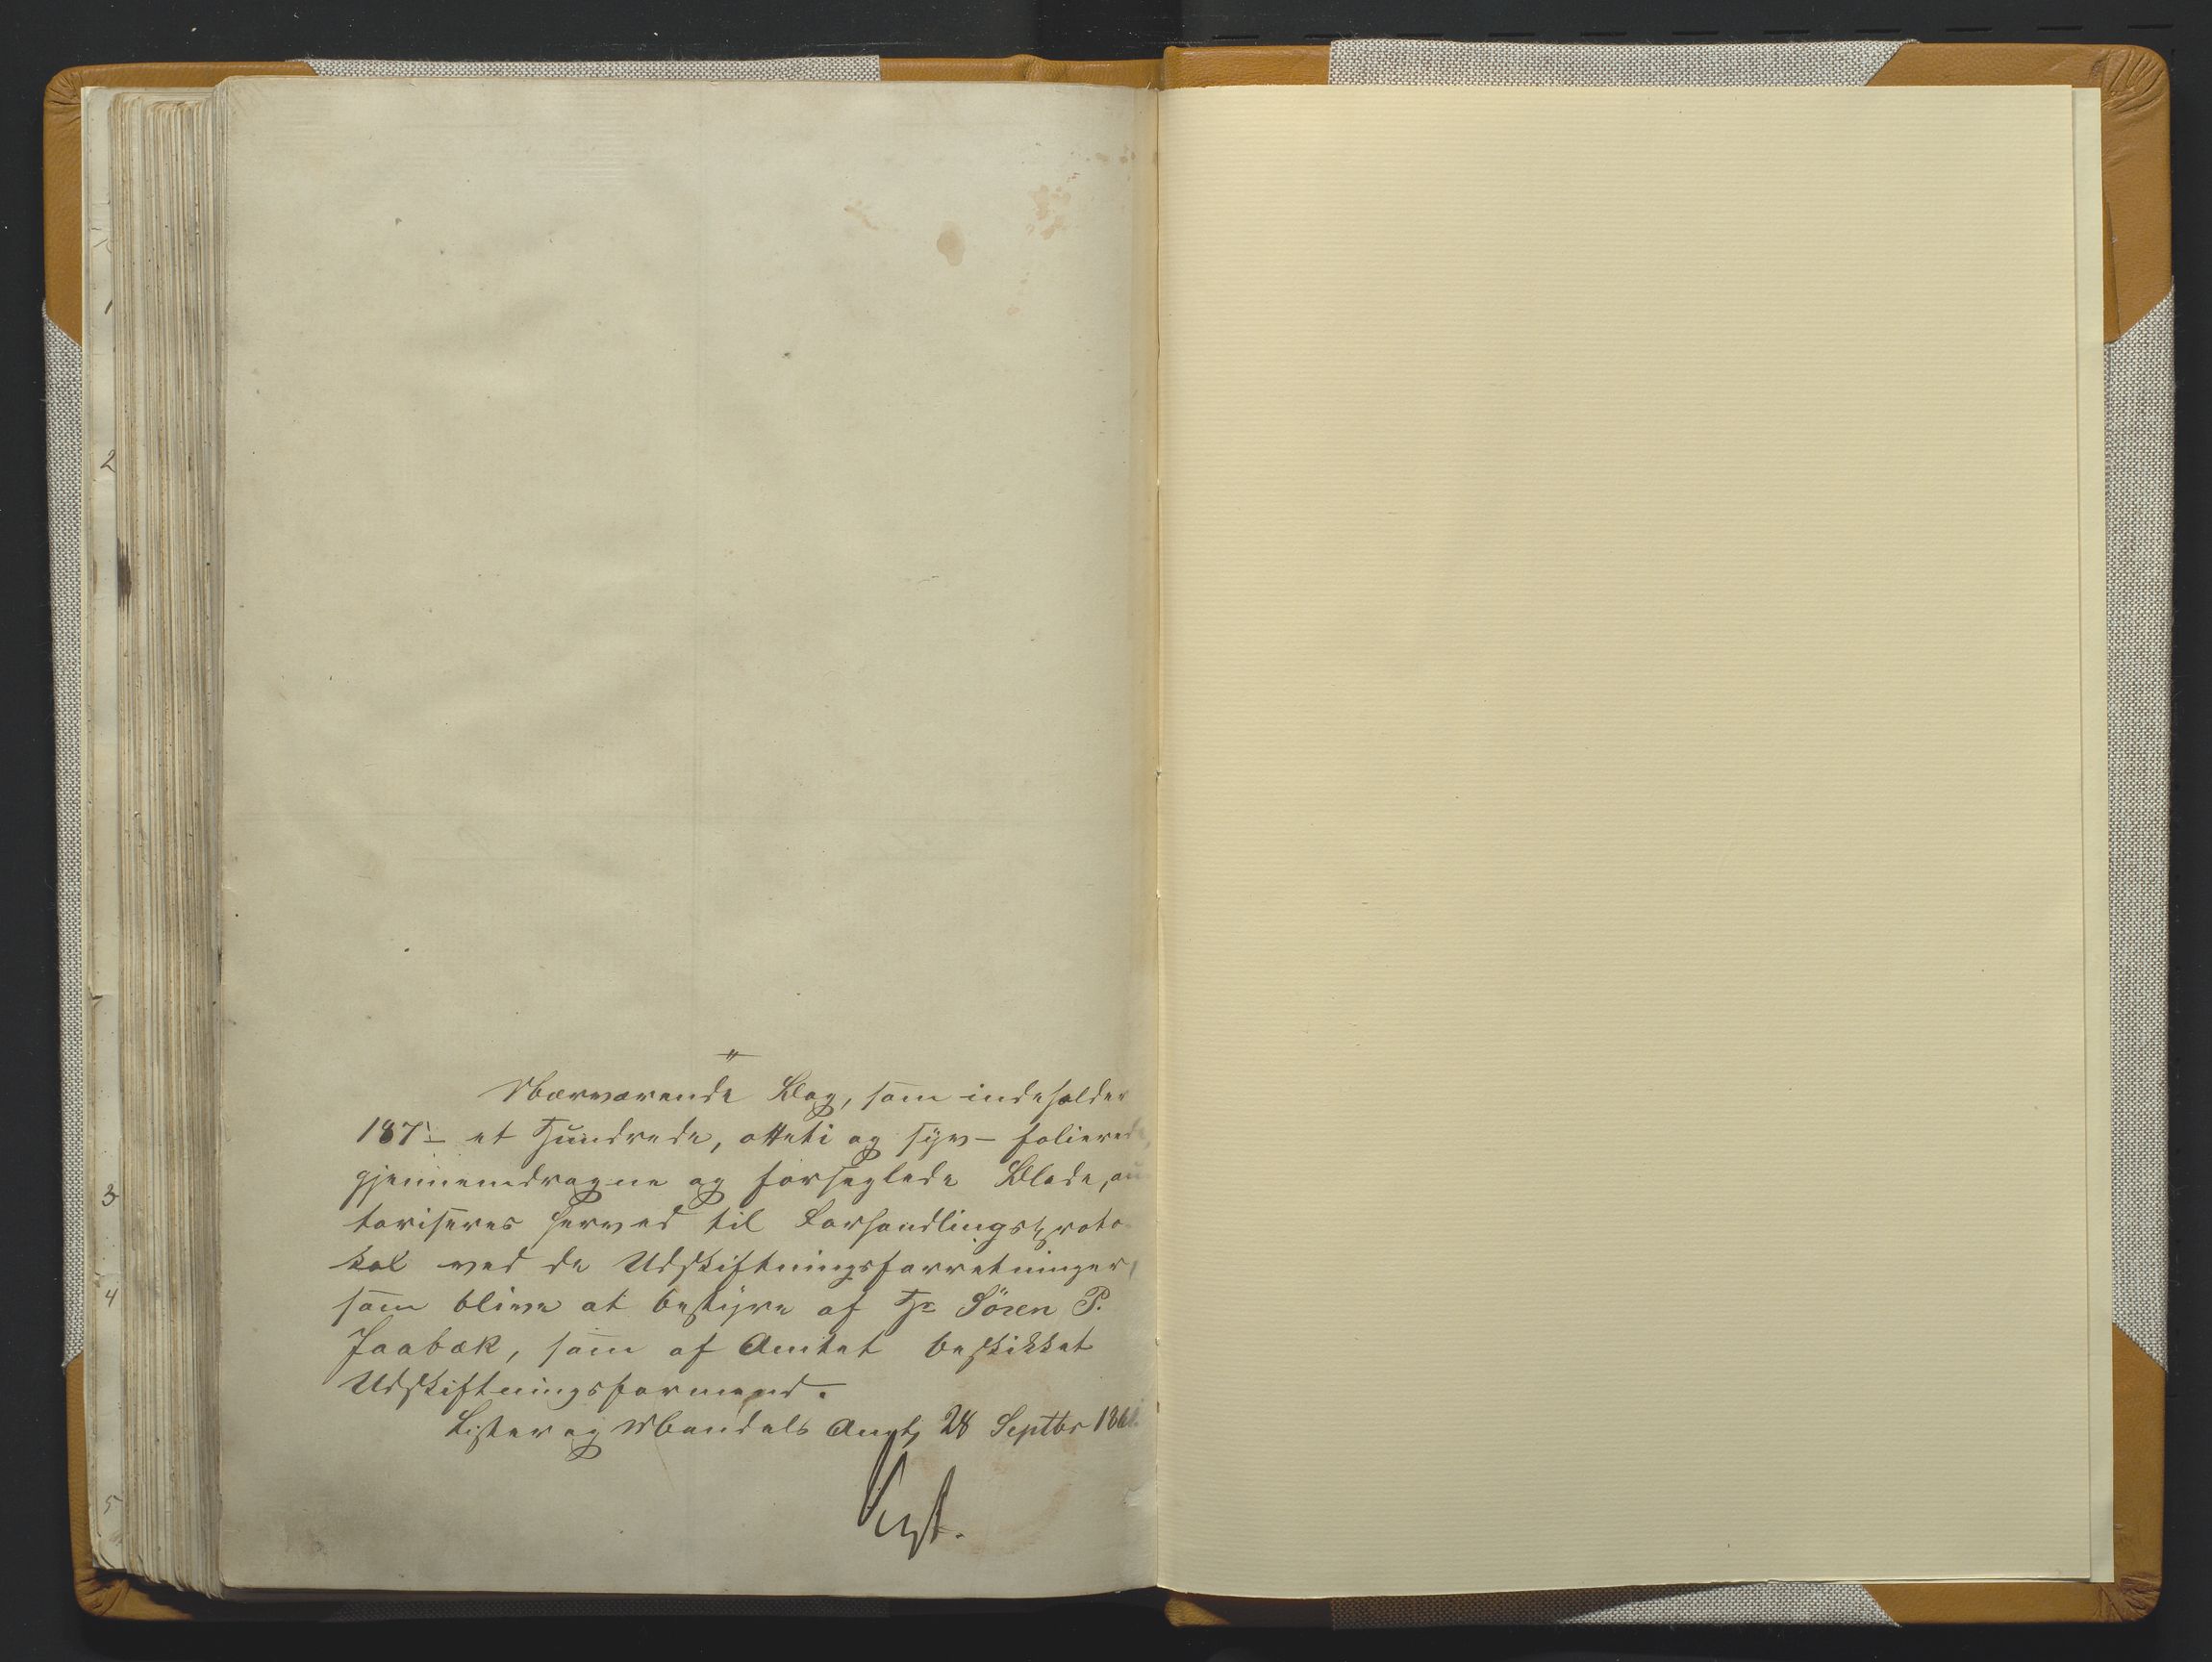 Nærværende Bog, som indeholder
187 – et Hundrede, otteti og syv – folierede,
gjennemdragne og forseglede Blade, au
toriseres herved til Forhandlingsproto-
kol ved de Udskiftningsforretninger,
som blive at bestyre af Hr Sören P.
Jaabæk, som af Amtet beskikket
Udskiftningsformand.
Lister og Mandals Amt, 28 Septbr 186
Vogt.
2
3
4
5